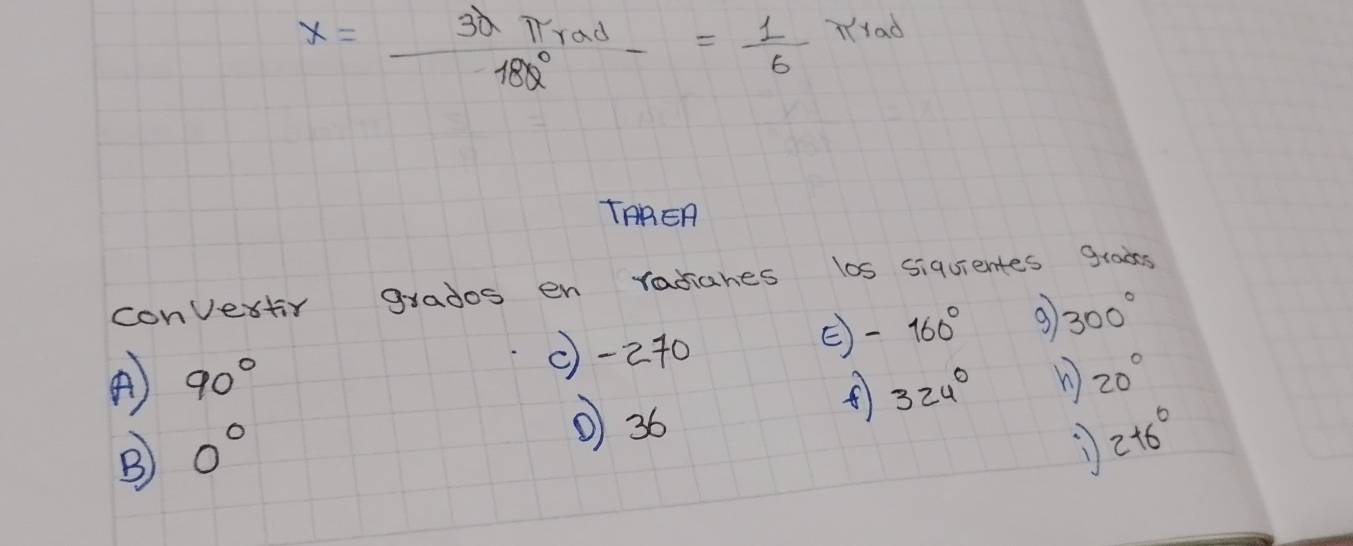 x = 30 πrad / 180° = 1/6 πrad
TAREA
convertir grados en radianes los siguientes grados
A) 90° C) -270 E) - 160° g) 300°
B) 0° D) 36 f) 324° h) 20°
i) 216°